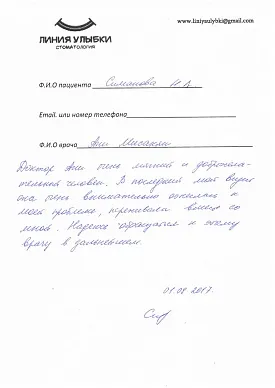 www.liniyaulybki@gmail.com
ЛИНИЯ УЛЫБКИ
СТОМАТОЛОГИЯ
Ф.И.О пациента Симанова Н.А.
Email. или номер телефона
Ф.И.О врача Ани
Доктор Ани очень милый и доброжела-
тельный человек. В последний мой визит
она очень внимательно отнеслась к
моей проблеме, переживала вместе со
мной. Надеюсь обращаться к этому
врачу в дальнейшем.
01.08.2017.